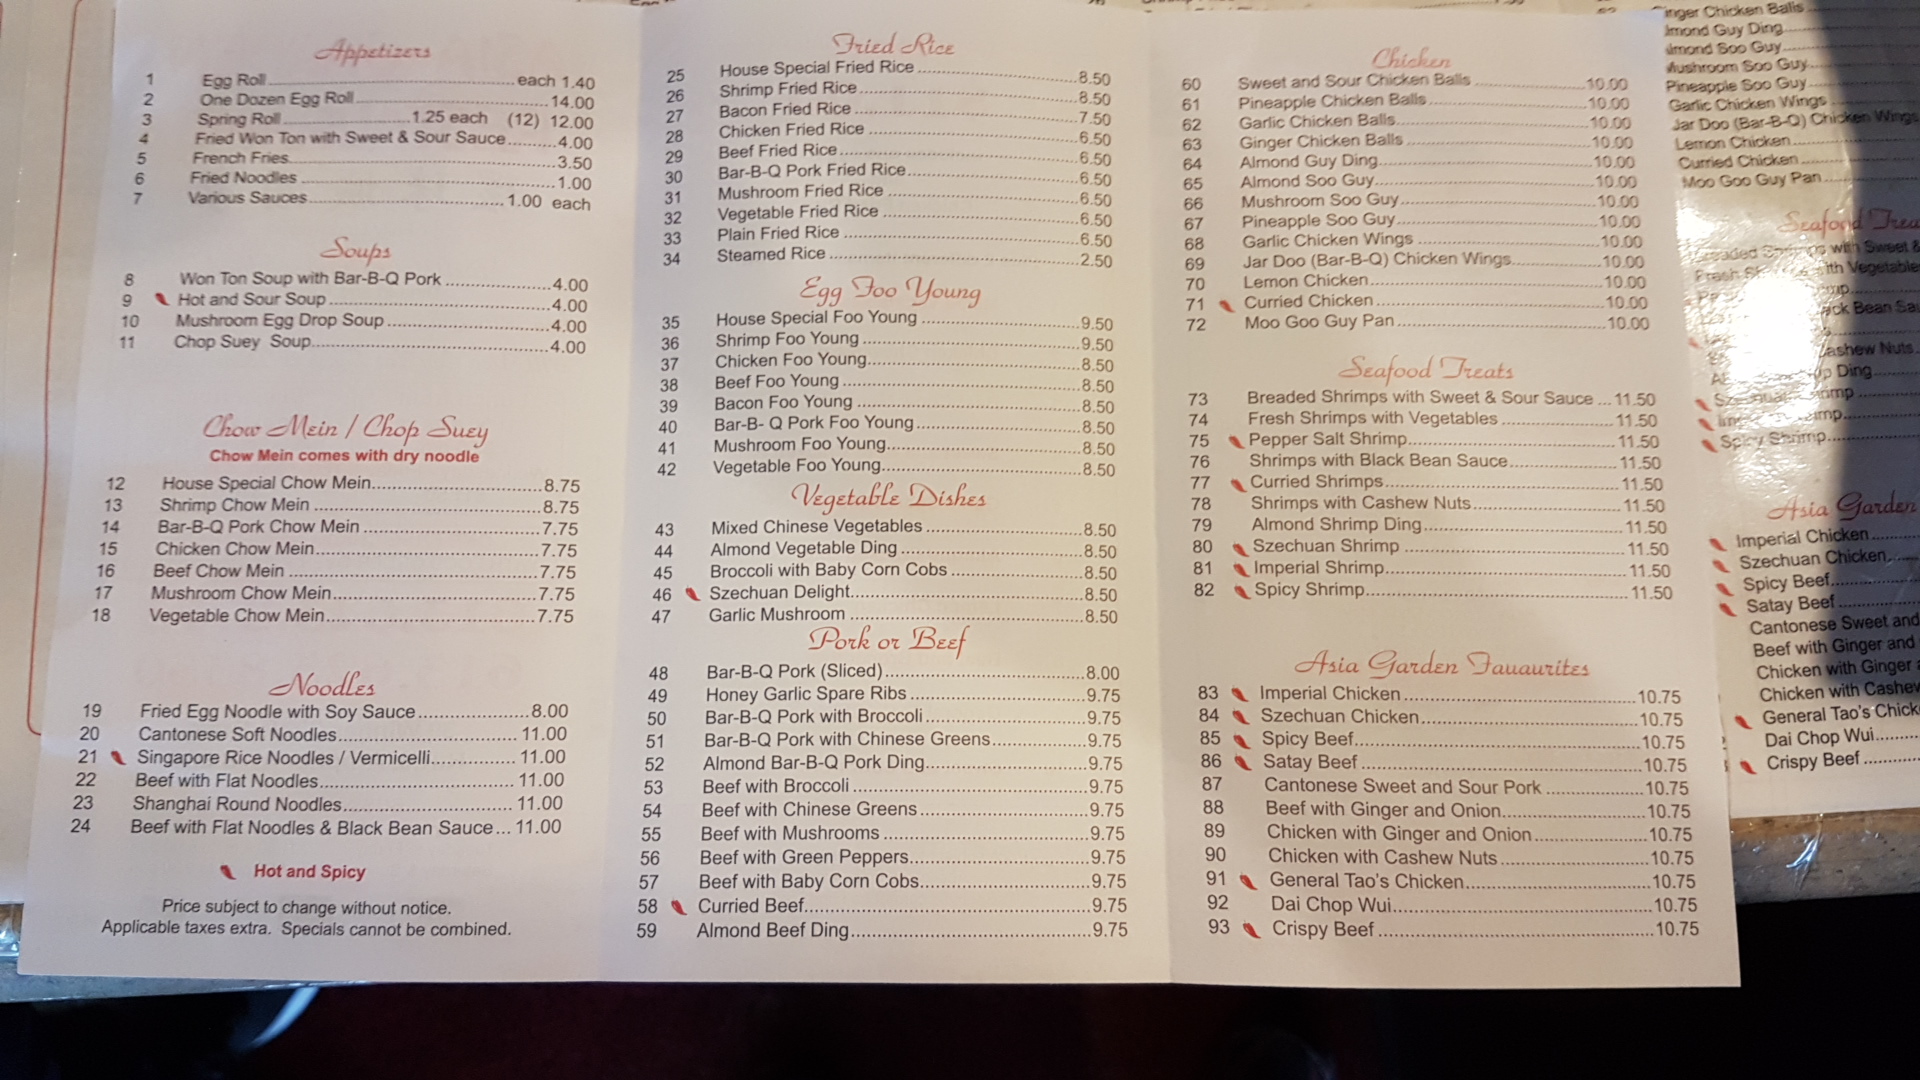 Appetizers
1 Egg Roll each 1.40
2 One Dozen Egg Roll 14.00
3 Spring Roll 1.25 each (12) 12.00
4 Fried Won Ton with Sweet & Sour Sauce 4.00
5 French Fries 3.50
6 Fried Noodles 1.00
7 Various Sauces 1.00 each
Soups
8 Won Ton Soup with Bar-B-Q Pork 4.00
9 Hot and Sour Soup 4.00
10 Mushroom Egg Drop Soup 4.00
11 Chop Suey Soup 4.00
Chow Mein / Chop Suey
Chow Mein comes with dry noodle
12 House Special Chow Mein 8.75
13 Shrimp Chow Mein 8.75
14 Bar-B-Q Pork Chow Mein 7.75
15 Chicken Chow Mein 7.75
16 Beef Chow Mein 7.75
17 Mushroom Chow Mein 7.75
18 Vegetable Chow Mein 7.75
Noodles
19 Fried Egg Noodle with Soy Sauce 8.00
20 Cantonese Soft Noodles 11.00
21 Singapore Rice Noodles / Vermicelli 11.00
22 Beef with Flat Noodles 11.00
23 Shanghai Round Noodles 11.00
24 Beef with Flat Noodles & Black Bean Sauce 11.00
Hot and Spicy
Price subject to change without notice.
Applicable taxes extra. Specials cannot be combined.
Fried Rice
25 House Special Fried Rice 8.50
26 Shrimp Fried Rice 8.50
27 Bacon Fried Rice 7.50
28 Chicken Fried Rice 6.50
29 Beef Fried Rice 6.50
30 Bar-B-Q Pork Fried Rice 6.50
31 Mushroom Fried Rice 6.50
32 Vegetable Fried Rice 6.50
33 Plain Fried Rice 6.50
34 Steamed Rice 2.50
Egg Foo Young
35 House Special Foo Young 9.50
36 Shrimp Foo Young 9.50
37 Chicken Foo Young 8.50
38 Beef Foo Young 8.50
39 Bacon Foo Young 8.50
40 Bar-B- Q Pork Foo Young 8.50
41 Mushroom Foo Young 8.50
42 Vegetable Foo Young 8.50
Vegetable Dishes
43 Mixed Chinese Vegetables 8.50
44 Almond Vegetable Ding 8.50
45 Broccoli with Baby Corn Cobs 8.50
46 Szechuan Delight 8.50
47 Garlic Mushroom 8.50
Pork or Beef
48 Bar-B-Q Pork (Sliced) 8.00
49 Honey Garlic Spare Ribs 9.75
50 Bar-B-Q Pork with Broccoli 9.75
51 Bar-B-Q Pork with Chinese Greens 9.75
52 Almond Bar-B-Q Pork Ding 9.75
53 Beef with Broccoli 9.75
54 Beef with Chinese Greens 9.75
55 Beef with Mushrooms 9.75
56 Beef with Green Peppers 9.75
57 Beef with Baby Corn Cobs 9.75
58 Curried Beef 9.75
59 Almond Beef Ding 9.75
Chicken
60 Sweet and Sour Chicken Balls 10.00
61 Pineapple Chicken Balls 10.00
62 Garlic Chicken Balls 10.00
63 Ginger Chicken Balls 10.00
64 Almond Guy Ding 10.00
65 Almond Soo Guy 10.00
66 Mushroom Soo Guy 10.00
67 Pineapple Soo Guy 10.00
68 Garlic Chicken Wings 10.00
69 Jar Doo (Bar-B-Q) Chicken Wings 10.00
70 Lemon Chicken 10.00
71 Curried Chicken 10.00
72 Moo Goo Guy Pan 10.00
Seafood Treats
73 Breaded Shrimps with Sweet & Sour Sauce 11.50
74 Fresh Shrimps with Vegetables 11.50
75 Pepper Salt Shrimp 11.50
76 Shrimps with Black Bean Sauce 11.50
77 Curried Shrimps 11.50
78 Shrimps with Cashew Nuts 11.50
79 Almond Shrimp Ding 11.50
80 Szechuan Shrimp 11.50
81 Imperial Shrimp 11.50
82 Spicy Shrimp 11.50
Asia Garden Fauaurites
83 Imperial Chicken 10.75
84 Szechuan Chicken 10.75
85 Spicy Beef 10.75
86 Satay Beef 10.75
87 Cantonese Sweet and Sour Pork 10.75
88 Beef with Ginger and Onion 10.75
89 Chicken with Ginger and Onion 10.75
90 Chicken with Cashew Nuts 10.75
91 General Tao's Chicken 10.75
92 Dai Chop Wui 10.75
93 Crispy Beef 10.75
Ginger Chicken Balls
Almond Guy Ding
Almond Soo Guy
Mushroom Soo Guy
Pineapple Soo Guy
Garlic Chicken Wings
Jar Doo (Bar-B-Q) Chicken Wings
Lemon Chicken
Curried Chicken
Moo Goo Guy Pan
Seafood
with Sweet &
with Vegetable
Black Bean
Cashew Nuts
Ding
Spicy Shrimp
Asia Garden
Imperial Chicken
Szechuan Chicken
Spicy Beef
Satay Beef
Cantonese Sweet and
Beef with Ginger and
Chicken with Ginger
Chicken with Cashew
General Tao's Chick
Dai Chop Wui
Crispy Beef